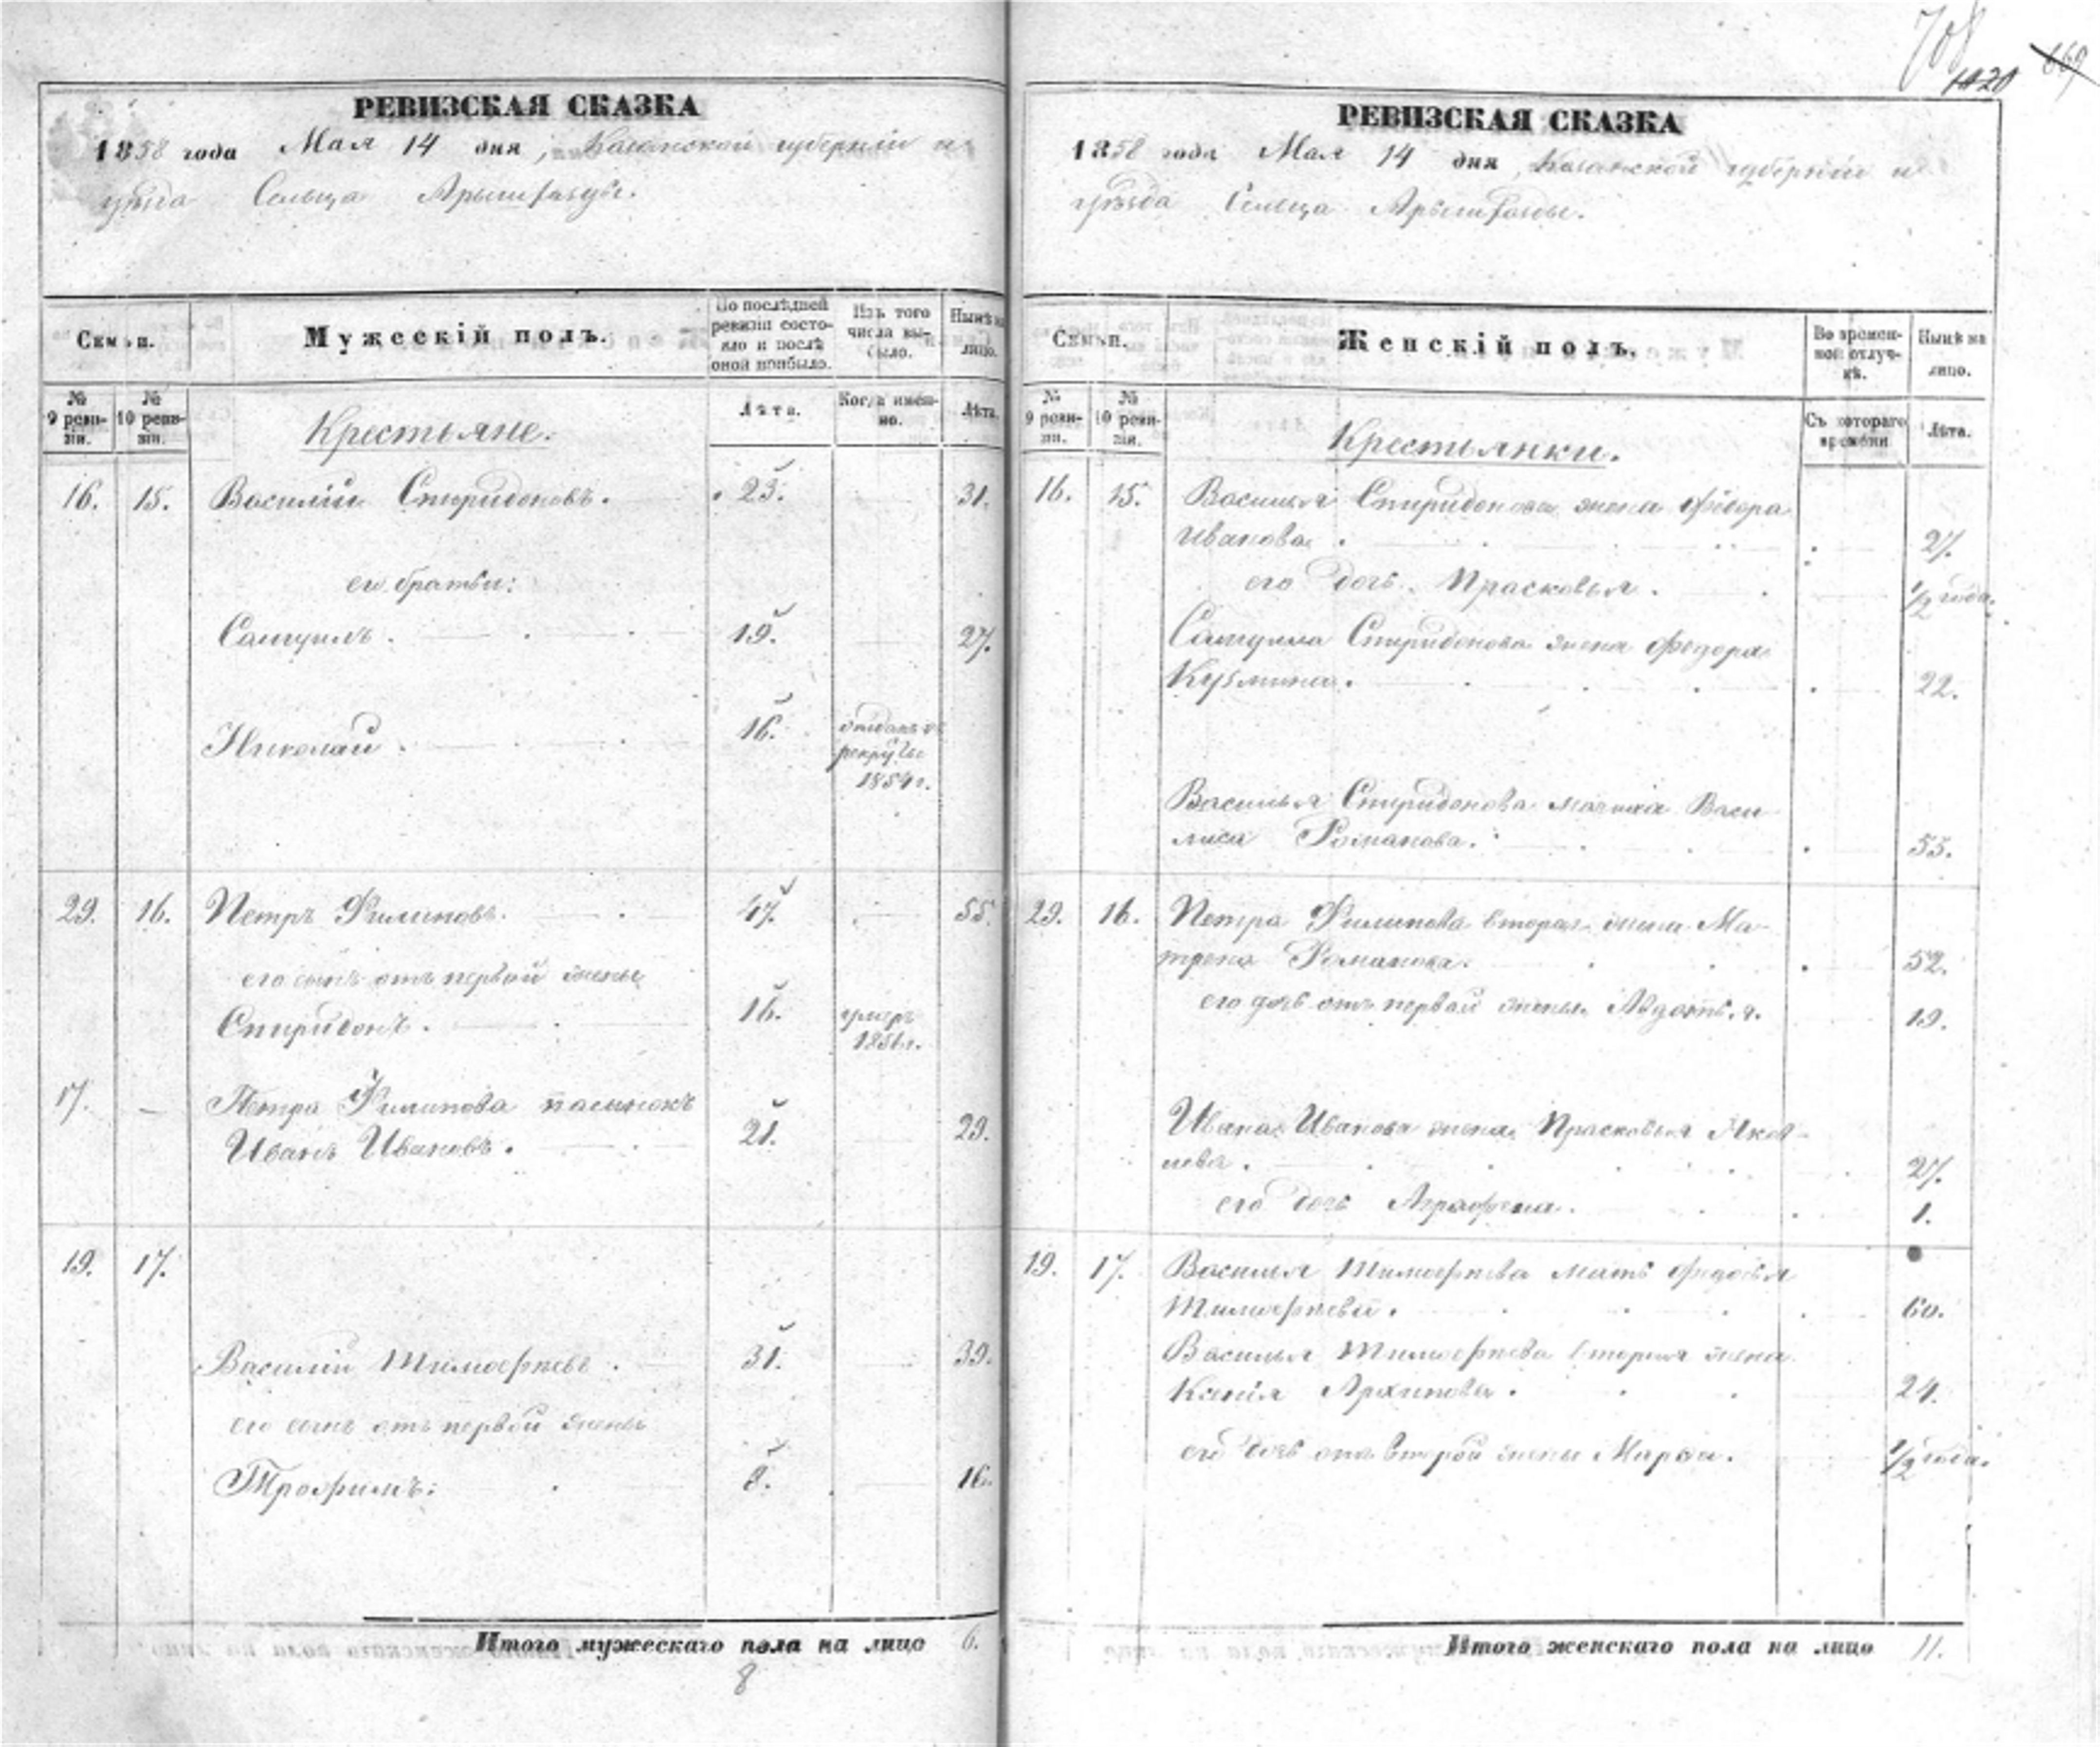 708
1420 669
РЕВИЗСКАЯ СКАЗКА
1858 года Мая 14 дня, Казанской губерніи и
уѣзда Сельца
Семьи.
Мужескій полъ.
По послѣдней ревизіи состояло и послѣ оной прибыло.
Изъ того числа выбыло.
Нынѣ на лицо.
№ 9 ревизіи.
№ 10 ревизіи.
Крестьяне.
Лѣта.
Когда именно.
Лѣта.
16. 15. Василій Спиридоновъ. 23. 31.
его братьи:
Самуилъ. 19. 27.
Николай. 16. отданъ въ
рекруты
1854 г.
29. 16. Петръ Филиповъ. 47. 55.
его сынъ отъ первой жены
Спиридонъ. 16. умеръ
185 г.
17. — Петра Филипова пасынокъ
Иванъ Ивановъ. 21. 29.
19. 17.
Василій Тимофѣевъ. 31. 39.
его сынъ отъ первой жены
Трофимъ. 8. 16.
Итого мужескаго пола на лицо 6.
8
РЕВИЗСКАЯ СКАЗКА
1858 года Мая 14 дня, Казанской губерніи и
уѣзда Сельца
Семьи.
Женскій полъ.
Во временной отлучкѣ.
Нынѣ на лицо.
№ 9 ревизіи.
№ 10 ревизіи.
Крестьянки.
Съ котораго времени
Лѣта.
16. 15. Василья Спиридонова жена Федора
Иванова. 27.
его дочь Прасковья. 1/2 года.
Самуила Спиридонова жена Федора
Кузмина. 22.
Василья Спиридонова мачиха Васи
лиса Романова. 55.
29. 16. Петра Филипова вторая жена Ма-
трена Романова. 52.
его дочь отъ первой жены Авдотья. 19.
Ивана Иванова жена Прасковья Яков-
лева. 27.
его дочь Аграфена. 1.
19. 17. Василья Тимофѣева мать Федосья
Тимофѣева. 60.
Василья Тимофѣева вторая жена
Ксенія Архипова. 24.
его дочь отъ второй жены Марфа. 1/2 года.
Итого женскаго пола на лицо 11.